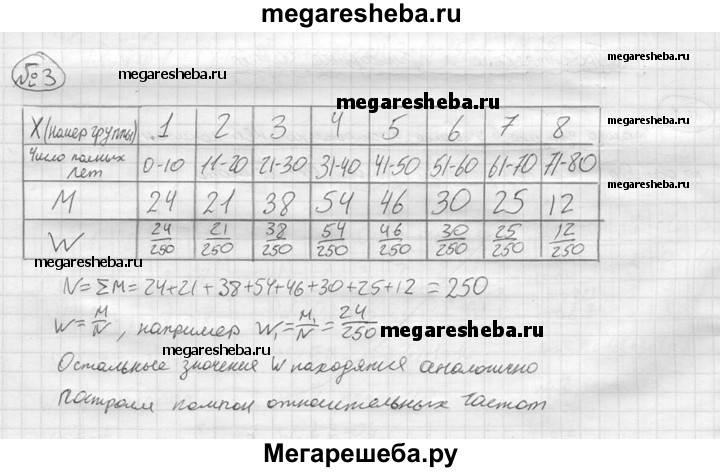 megaresheba.ru
№3
megaresheba.ru
megaresheba.ru
megaresheba.ru
X (номер группы) 1 2 3 4 5 6 7 8
Число полных лет 0-10 11-20 21-30 31-40 41-50 51-60 61-70 71-80
megaresheba.ru
M 24 21 38 54 46 30 25 12
W 24/250 21/250 38/250 54/250 46/250 30/250 25/250 12/250
megaresheba.ru
N=ΣM=24+21+38+54+46+30+25+12=250
W=M/N, например W₁=M₁/N=24/250
megaresheba.ru
megaresheba.ru
Остальные значения W находятся аналогично
Построим полигон относительных частот
Мегарешеба.ру